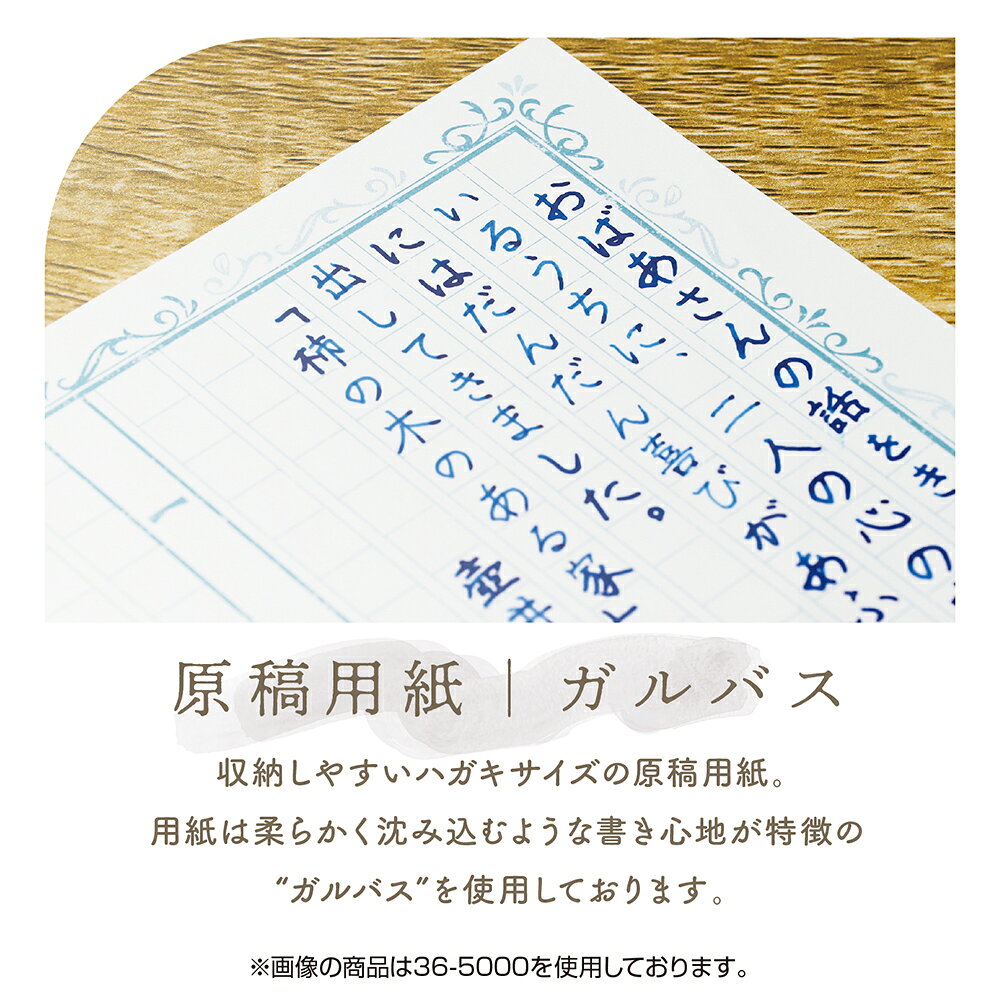 おばあさんの話をき
いるうちに、二人の心の
にはだんだん喜びがあふ
出してきました。
「柿の木のある家」
壺井
原稿用紙｜ガルバス
収納しやすいハガキサイズの原稿用紙。
用紙は柔らかく沈み込むような書き心地が特徴の
“ガルバス”を使用しております。
※画像の商品は36-5000を使用しております。